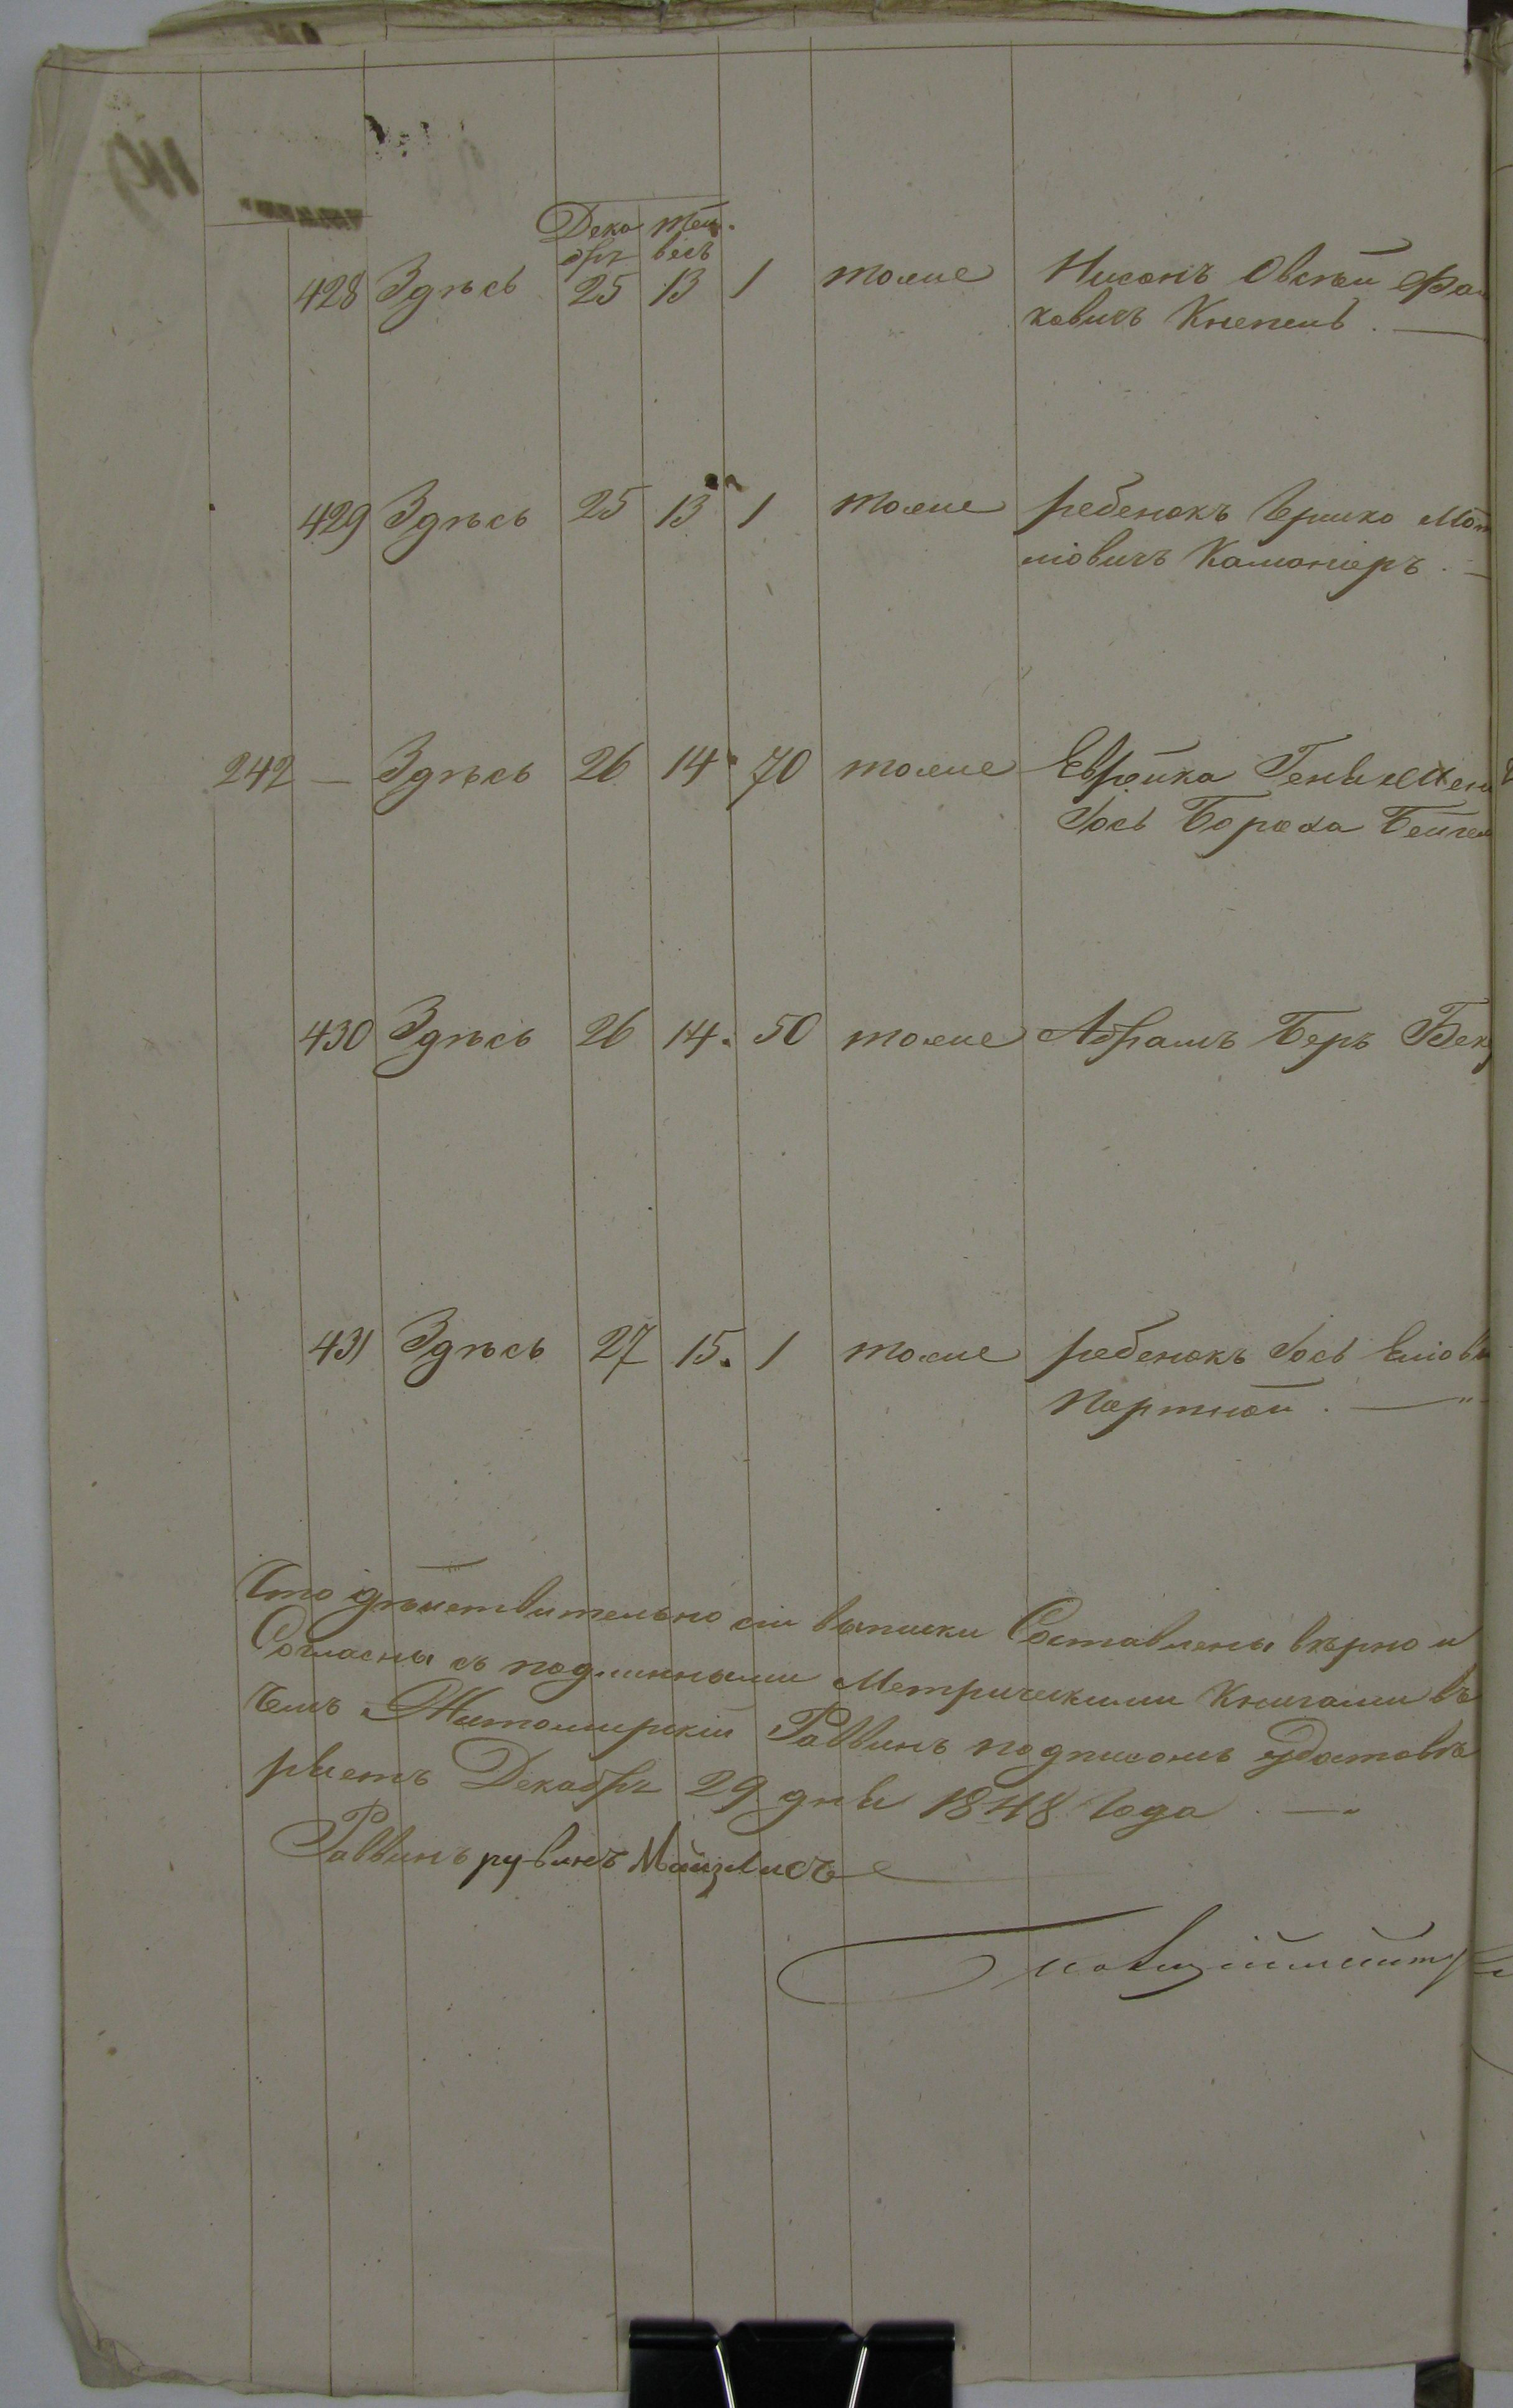 Дека Теи.
бря весъ
428 Здѣсь 25 13 1 тоже Нисонъ Овсѣй
ковичъ Кнепель. —
429 Здѣсь 25 13 1 тоже ребенокъ Ершко Мот
ліовичъ
242 — Здѣсь 26 14 70 тоже Еврейка Геня
Іось Бороха
430 Здѣсь 26 14. 50 тоже Абрамъ Беръ
431 Здѣсь 27 15. 1 тоже ребенокъ Іось
Портной. —
Что дѣйствительно сіи выписки Составлены вѣрно и
Согласны съ подлинными Метрическими Книгами въ
чемъ Житомирскій Раввинъ подписомъ удостовѣ
ряетъ Декабря 29 дня 1848 Года. —
Раввинъ рувинъ Майзлисъ